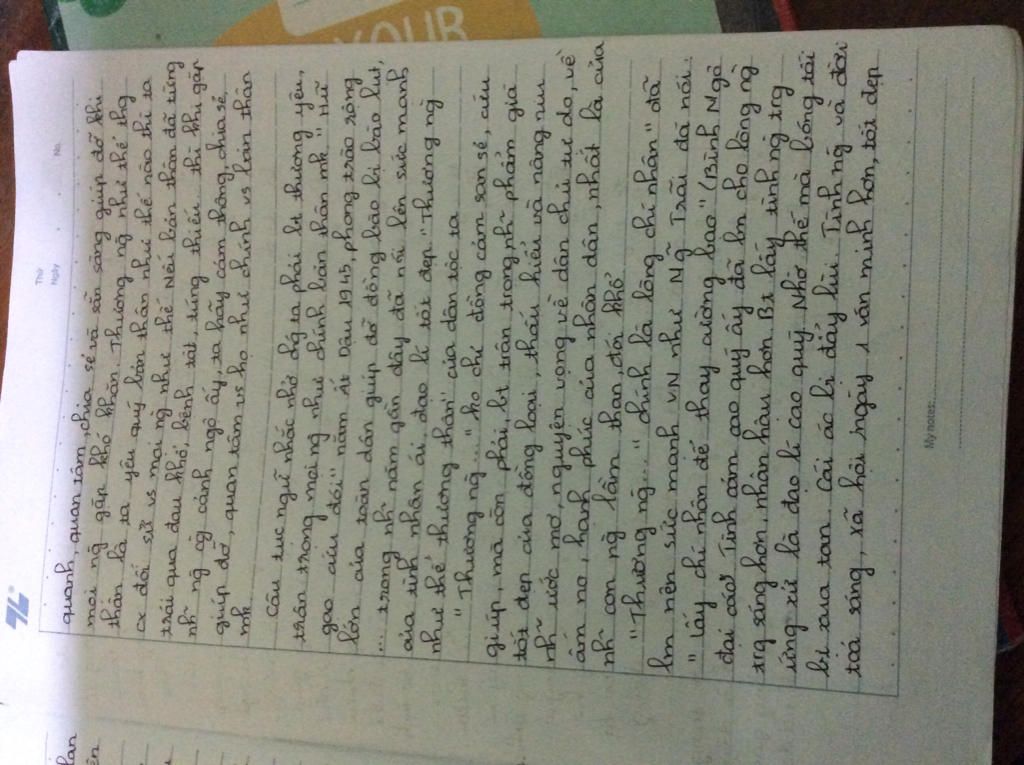 YOUR
Thứ
Ngày
No.
quanh, quan tâm, chia sẻ và sẵn sàng giúp đỡ khi
mọi ng gặp khó khăn. Thương ng như thể thg
thân là ta yêu quý bản thân như thế nào thì ta
cx đối sử vs mọi ng như thế. Nếu bản thân đã từng
trải qua đau khổ, bệnh tật, túng thiếu thì khi gặp
nh~ ng cg cảnh ngộ ấy, ta hãy cảm thông, chia sẻ,
giúp đỡ, quan tâm vs họ như chính vs bản thân
mk
Câu tục ngữ nhắc nhở chg ta phải bt thương yêu,
trân trọng mọi ng như chính bản thân mk. "Hũ
gạo cứu đói" năm Ất Dậu 1945, phong trào rộng
lớn của toàn dân giúp đỡ đồng bào bị bão lụt,
... trong nh~ năm gần đây đã nói lên sức mạnh
của tình nhân ái, đạo lí tốt đẹp "Thương ng
như thể thương thân" của dân tộc ta
"Thương ng..." ko chỉ đồng cảm san sẻ, cứu
giúp, mà còn phải bt trân trọng nh~ phẩm giá
tốt đẹp của đồng loại, thấu hiểu và nâng niu
nh~ ước mơ, nguyện vọng về dân chủ tự do, về
ấm no, hạnh phúc của nhân dân, nhất là của
nh~ con ng lầm than, đói khổ
"Thương ng..." chính là lòng chí nhân" đã
lm nên sức mạnh VN như Ng Trãi đã nói:
"lấy chí nhân để thay cường bạo" (Bình Ngô
đại cáo) Tình cảm cao quý ấy đã lm cho lòng ng
trg sáng hơn, nhân hậu hơn. Bt lấy tình ng trg
ứng xử là đạo lí cao quý. Nhờ thế mà bóng tối
bị xua tan. Cái ác bị đẩy lùi. Tình ng và đời
toả sáng, xã hội ngày 1 văn minh hơn, tốt đẹp
My notes:
lan
ên